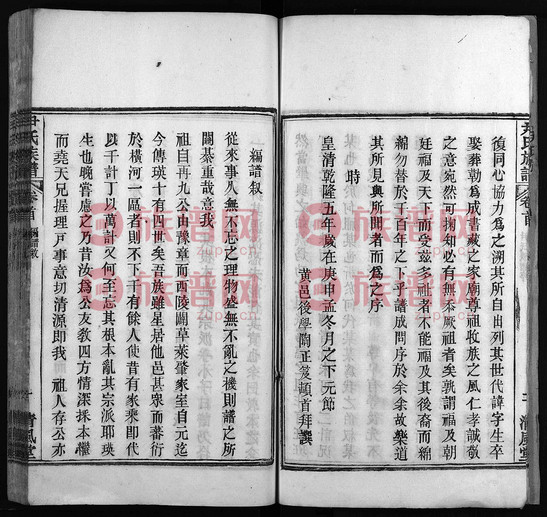 復同心協力爲之溯其所自出列其世代諱字生卒
娶葬勒爲成書藏之家廟尊祖收族之風仁孝誠敬
之意宛然可掬知必有無忝厥祖者矣孰謂福及朝
廷福及天下而受茲多祖者不能福及其後裔而綿
瀚勿替於千百年之下乎譜成問序於余余故樂道
其所見與所聞者而爲之序
時
皇清乾隆五年歲在庚申孟冬月之下元節
黃邑後學陶正笈頓首拜譔
尹氏族譜
卷首
清風堂
編譜敘
從來事人無不忘之理物盛無不亂之機則譜之所
關綦重哉意我
祖自再九公由豫章而西陵闢草萊肇家室自元迄
今傳瑛十有四世矣吾族雖星居他邑甚衆而蕃衍
於橫河一區者則不下千有餘人使昔有家乘卽代
以千計丁以萬計又何至忘其根本亂其宗派耶瑛
生也晚嘗慮之乃昔汝爲公友教四方情深採本權
而堯天兄握理戸事意切清源卽我 祖人存公亦
尹氏族譜
卷首
編譜敘
清風堂
族譜网